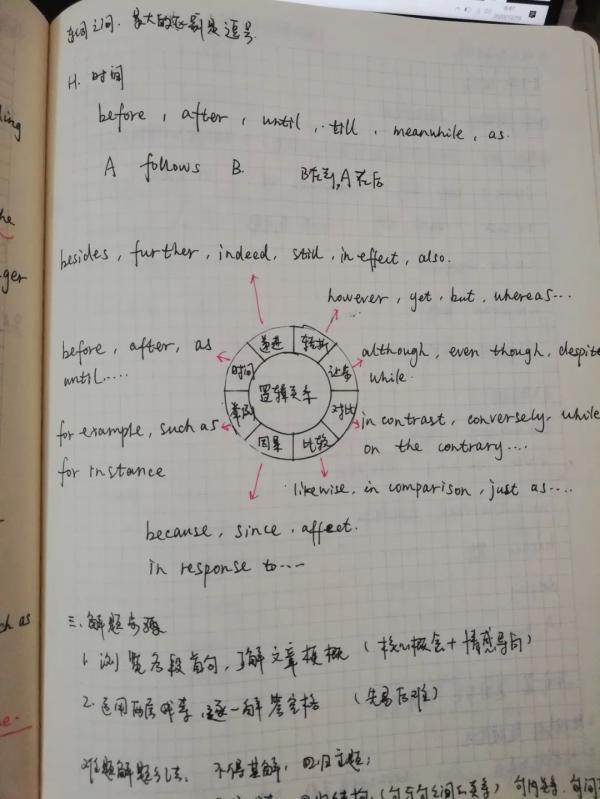 句间之间，最大的区别是逗号.
H. 时间
before, after, until, till, meanwhile, as.
A follows B. B在前, A在后
besides, further, indeed, still, in effect, also.
however, yet, but, whereas...
递进 转折
before, after, as
until.....
时间
让步
although, even though, despite
while.
逻辑关系
举例
对比
for example, such as
for instance
in contrast, conversely, while
on the contrary....
因果 比较
likewise, in comparison, just as....
because, since, affect.
in response to....
三. 解题步骤
1. 浏览各段首句, 了解文章梗概 (核心概念+情感导向)
2. 运用两层, 逐一解答空格 (先易后难)
难题解题方法. 不得其解, 回归主题;
(句与句之间的关系)
ling
the
ger
ch as